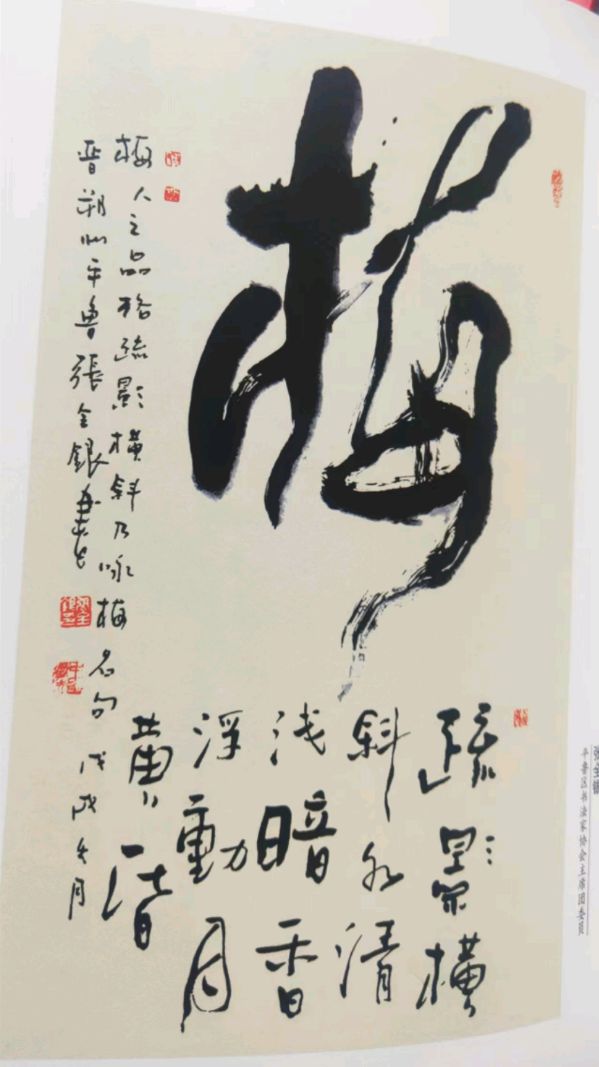 梅
疏影橫
斜水清
浅暗香
浮動月
黄昏
梅人之品格疏影橫斜乃咏梅名句戊戌冬月
晋朔州平鲁張全銀書
张全银
平鲁区书法家协会主席团委员